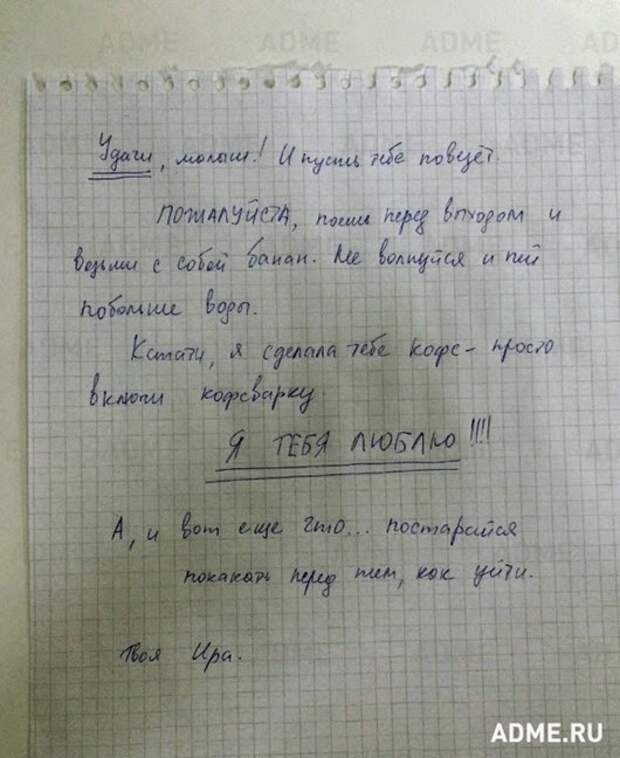 ADME
ADME
AD
Удачи, малыш! И пусть тебе повезёт.
ПОЖАЛУЙСТА, поешь перед выходом и
возьми с собой банан. Не волнуйся и пей
побольше воды.
Кстати, я сделала тебе кофе - просто
включи кофеварку.
Я ТЕБЯ ЛЮБЛЮ!!!!
А, и вот еще что... постарайся
покакать перед тем, как уйти.
Твоя Ира.
ADME.RU